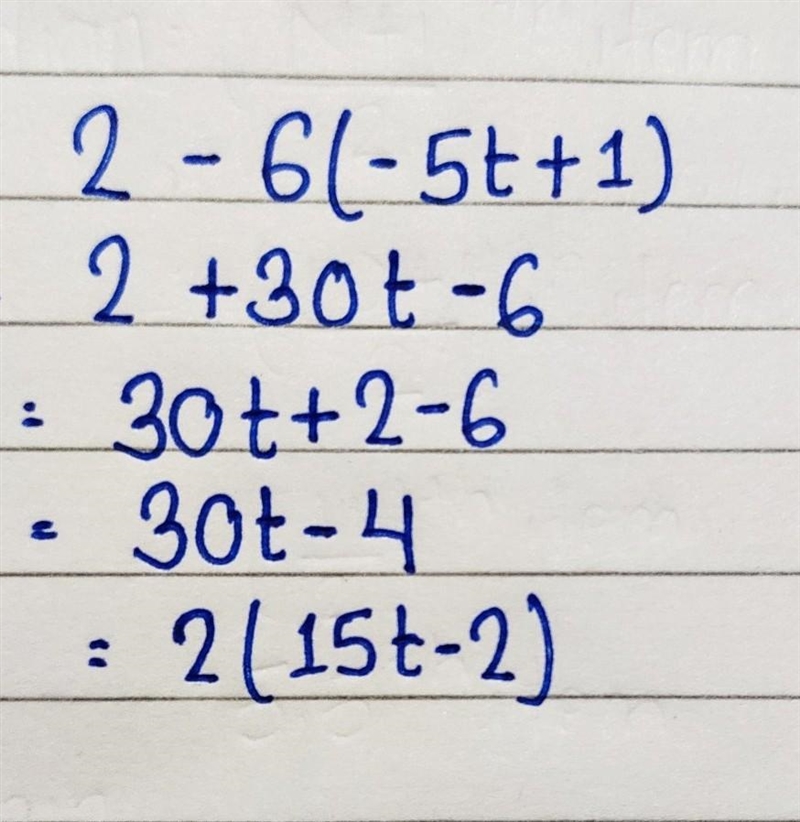 2 - 6(-5t+1)
2 +30t -6
= 30t+2-6
= 30t-4
= 2(15t-2)